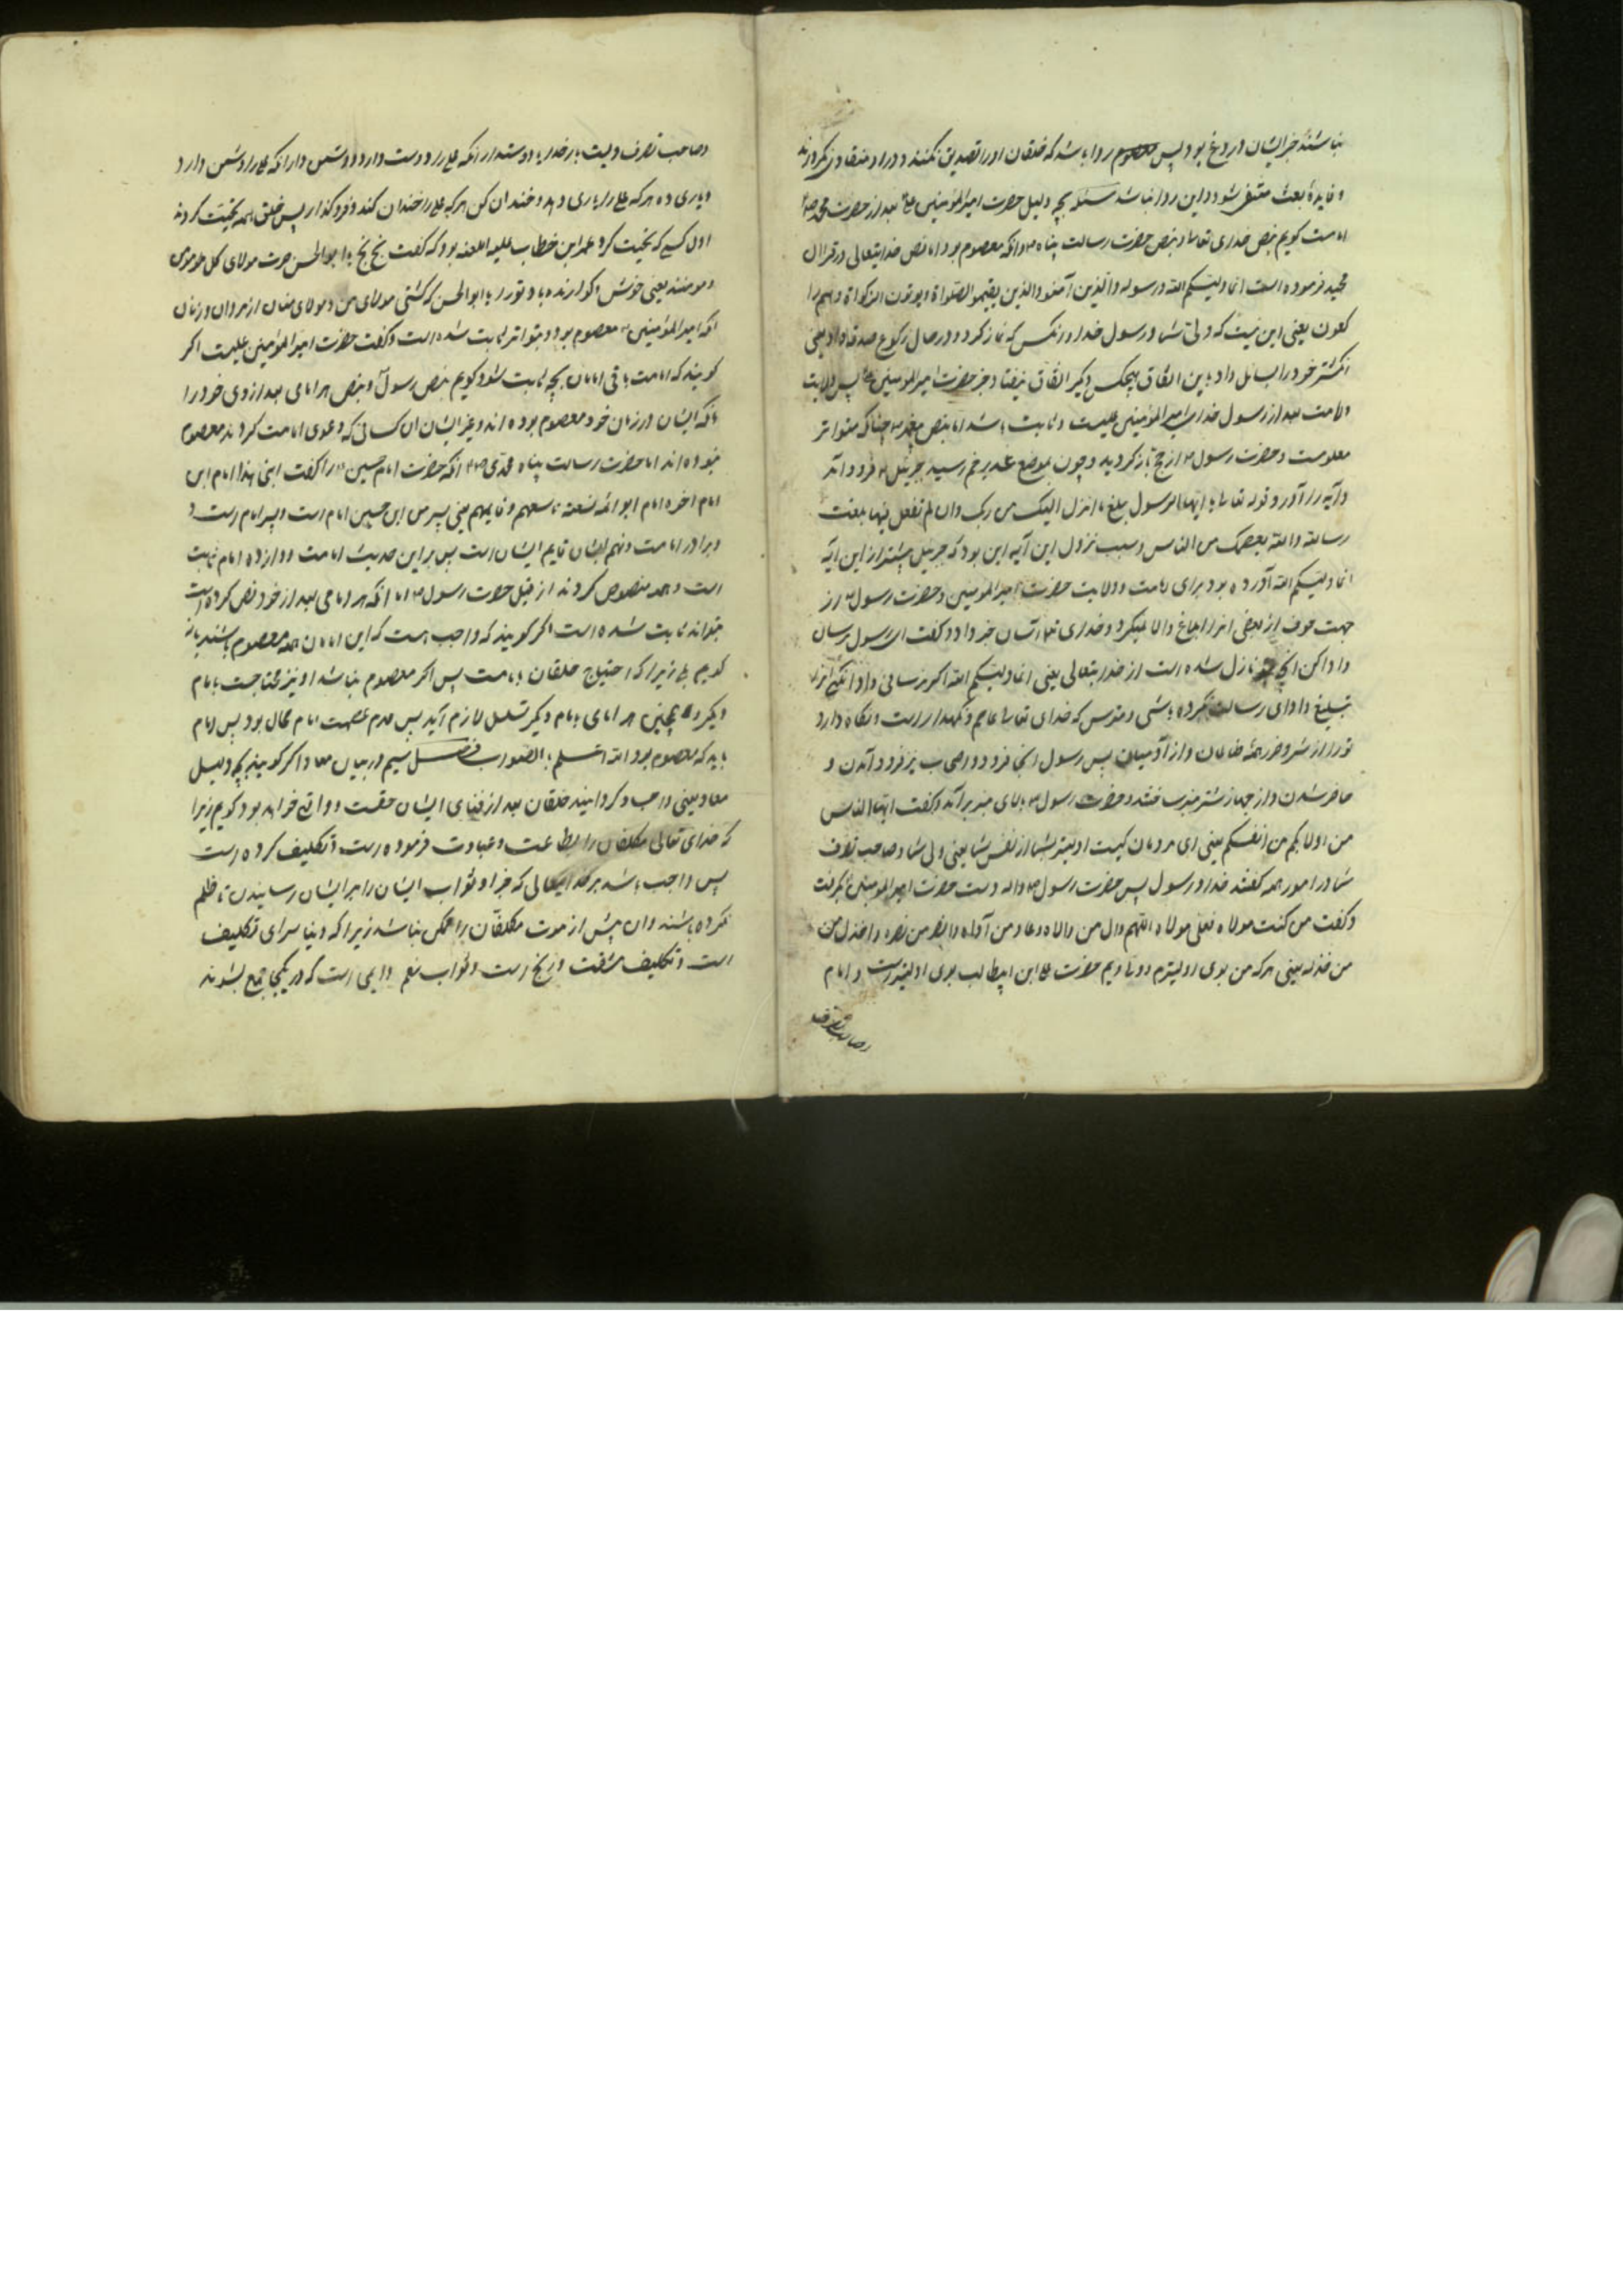 نباشند خبر ایشان دروغ بود پس روا باشد که خلقان او را تصدیق نکنند و او را منقاد نکردند
و فایدهٔ بعث منتفی شود و این روا نباشد مسئله بچه دلیل حضرت امیرالمؤمنین بعد از حضرت محمد
امامت کویم بنص خدای تعالی و بنص حضرت رسالت پناه و انکه معصوم بود اما نص خدایتعالی در قرآن
مجید فرموده است انما ولیّکم الله و رسوله و الذین آمنوا الذین یقیمو الصلواة و یوتون الزکواة و هم را
کعون یعنی این نیست که ولیّ شما و رسول خدا و انکس که نماز کرد و در حال رکوع صدقه داد یعنی
انکشتر خود را بسائل داد باین اتفاق هیچکس دیکر اتفاق نیفتاد جز حضرت امیرالمومنین پس ولایت
و امامت بعد از رسول خدا امیرالمؤمنین علیست و ثابت باشد اما بنص پیغمبر چنانکه متواتر
معلومست و حضرت رسول از حج باز کردید و چون بموضع غدیر خم رسید جبرئیل فرود آمد
و آیه را آورد قوله تعالی یا ایها الرسول بلغ ما انزل الیک من ربک وان لم تفعل فما بلغت
رسالته و الله یعصمک من الناس و سبب نزول این آیه این بود که جبرئیل پیشتر از این آیه
انما ولیّکم الله آورده بود برای امامت و ولایت حضرت امیرالمومنین و حضرت رسول از
جهت خوف از بعضی انرا ابلاغ و ادا نمیکرد و خدای تعالی از آن خبر داد و کفت ای رسول برسان
و ادا کن انچه نازل شده است از خدایتعالی یعنی انما ولیّکم الله اکر نرسانی و ادا نکنی
تبلیغ و ادای رسالت نکرده باشی و مترس که خدای تعالی عاصم و نکهدار است و نکاه دارد
تو را از شر و ضرر همهٔ ظالمان و از آدمیان پس رسول انجا فرود و اصحاب نیز فرود آمدن و
حاضر شدن و از جهاز شتر منبر ساختند و حضرت رسول ببالای منبر برآمد و کفت ایها الناس
من اولابکم من انفسکم یعنی ای مردمان کیست اولیتر بشما از نفس شما یعنی ولی شما و صاحب تصرف
شما در امور همه کفتند خدا و رسول پس حضرت رسول دست حضرت امیرالمومنین بکرفت
و کفت من کنت مولاه فعلی مولاه اللهم وال من والاه و عاد من آداه وانصر من نصره واخذل من
من خذله یعنی هر که من بوی اولیترم حضرت علی ابن ابیطالب بوی اولیتر است و امام
وصاحب تصرف
وصاحب تصرف ویست بار خدایا دوستدار انکه علی را دوست دارد و دشمن دار انکه علی را دشمن دارد
و یاری ده هر که علی را یاری دهد و خندان کن هر که علی را خندان کند و فروکذار پس خلق همه تحیّت کردند
اول کسی که تحیت کرد عمر ابن خطاب علیه اللعنه بود که کفت بخ بخ یا ابوالحسن صرت مولای کل مومن
و مومنة یعنی خوش و کوارنده باد تو را یا ابوالحسن که کشتی مولای من و مولای مؤمنان از مردان و زنان
انکه امیرالمؤمنین معصوم بود و بتواتر ثابت شده است و کفت حضرت امیرالمؤمنین علیست اکر
کویند که امامت باقی امامان بچه ثابت شود کویم بنص رسول و بنص هر امامی بعد از وی خود را
بانکه ایشان در زمان خود معصوم بوده اند و غیر ایشان ان کسانی که دعوی امامت کردند معصوم
نبوده اند اما حضرت رسالت پناه محمدی انکه حضرت امام حسین را کفت ابنی هذا امام ابن
امام اخو امام ابو ائمة تسعة تاسعهم و قایمهم یعنی پسر من این حسین امام است و پسر امام است و
برادر امامت و نهم ایشان قایم ایشان است پس بر این حدیث امامت دوازده امام ثابت
است و همه منصوص کردند از قبل حضرت رسول اما انکه هر امامی بعد از خود نص کرده است
بتواند ثابت شده است اکر کویند که واجب است که این امامان همه معصوم باشند یا نه
کویم بلی زیرا که احتیاج خلقان بامامت پس اکر معصوم نباشد او نیز محتاجست بامام
دیکر و همچنین هر امامی بامام دیکر تسلسل لازم آید پس عدم عصمت امام محال بود پس امام
باید که معصوم بود الله اعلم بالصواب فصل سیم در بیان معاد اکر کویند بچه دلیل
معاد یعنی واجب و کردانیند خلقان بعد از فنای ایشان حقست و واقع خواهد بود کویم زیرا
که خدای تعالی مکلفان را بطاعت و عبادت فرموده است و تکلیف کرده است
پس واجب باشد بر خدایتعالی که جزا و ثواب ایشان را بر ایشان رسانیدن تا ظلم
نکرده باشند وان پیش از موت مکلفان را ممکن نباشد زیرا که دنیا سرای تکلیف
است و تکلیف مشقت و رنج است و ثواب نعم دایمی است که در یکجا جمع نشوند